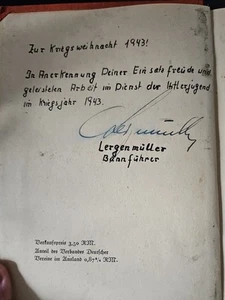 Zur Kriegsweihnacht 1943!
In Anerkennung Deiner Einsatzfreude und
geleisteten Arbeit im Dienst der Hitlerjugend
im Kriegsjahr 1943.
Lergenmüller
Bannführer
Verkaufspreis 3,50 RM.
Anteil der Verbandes Deutscher
Vereine im Ausland 0,87½ RM.